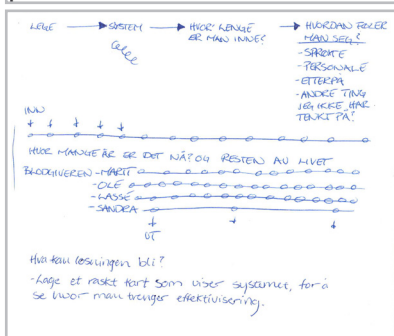 LEGE → SYSTEM → HVOR LENGE ER MAN INNE? → HVORDAN FØLER MAN SEG?
- SPRØYTE
- PERSONALE
- ETTERPÅ
- ANDRE TING JEG IKKE HAR TENKT PÅ?
INN
HVOR MANGE ÅR ER DET NÅ? OG RESTEN AV LIVET
BLODGIVEREN - MARTI
- OLE
- LASSE
- SANDRA
UT
Hva kan løsningen bli?
- Lage et raskt kart som viser systemet, for å
se hvor man trenger effektivisering.